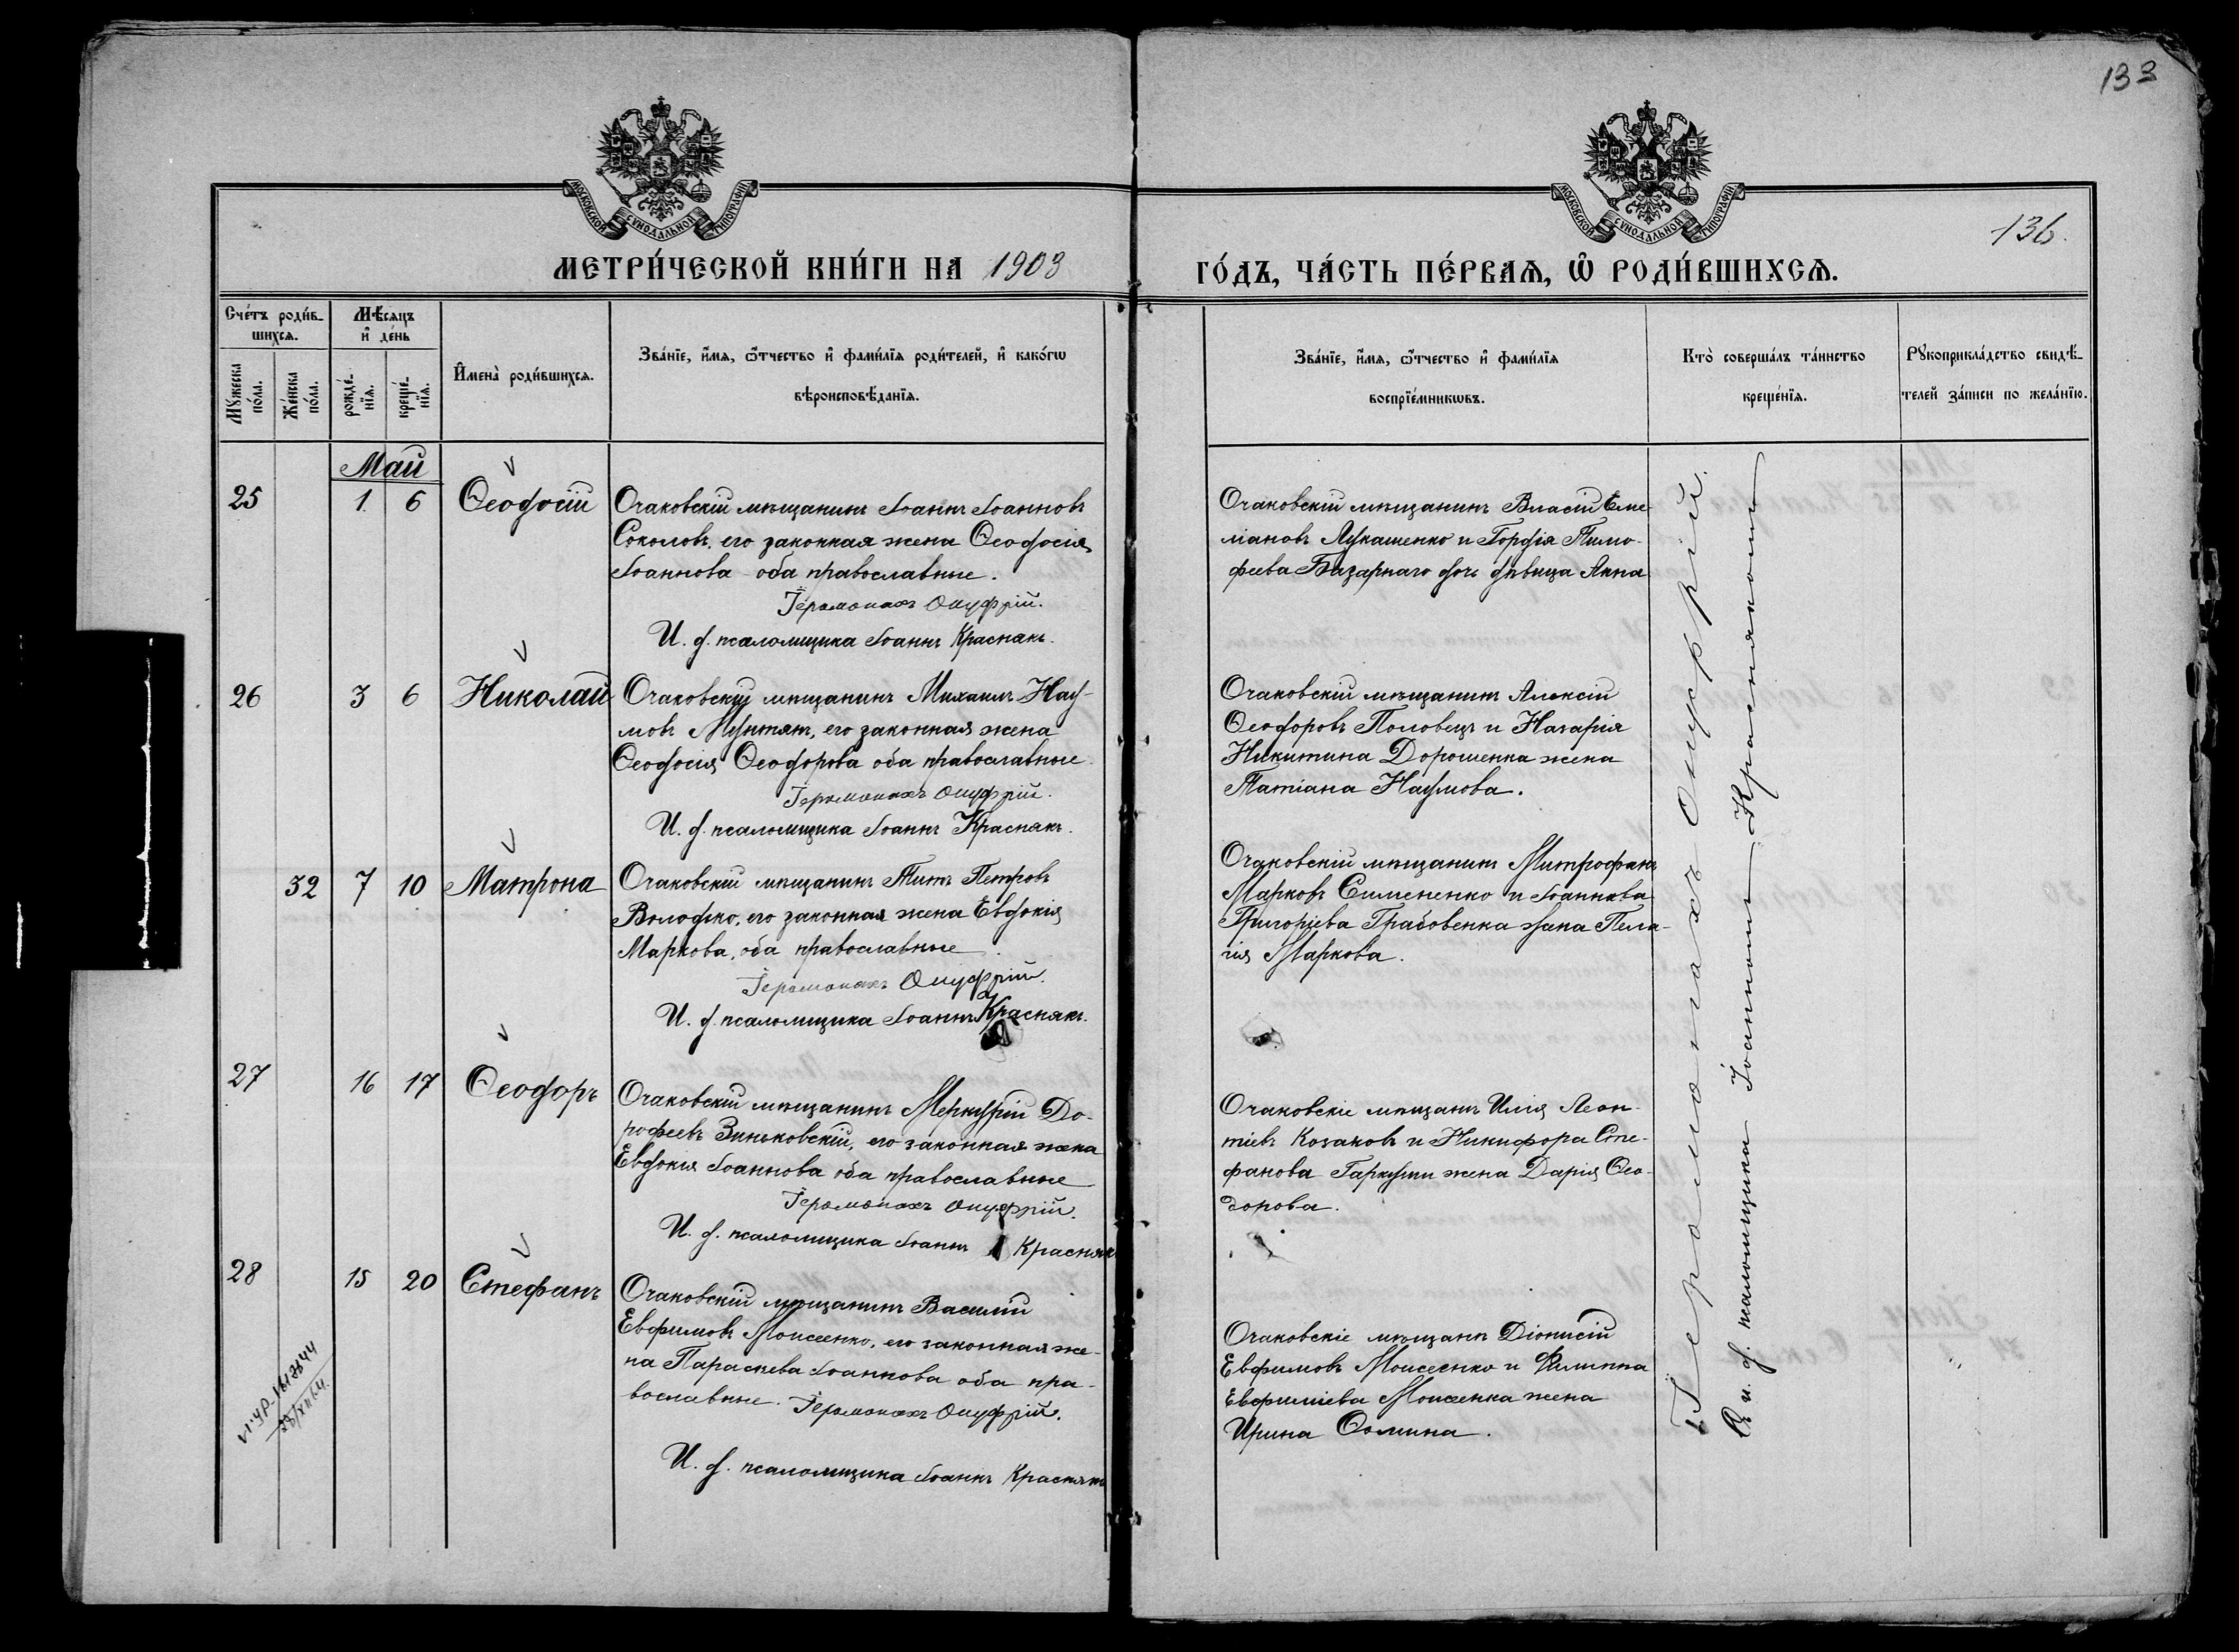 133
МОСКОВСКОЙ СУНОДАЛЬНОЙ ТИПОГРАФІИ
МОСКОВСКОЙ СУНОДАЛЬНОЙ ТИПОГРАФІИ
136.
МЕТРИ́ЧЕСКОЙ КНИ́ГИ НА 1903
ГО́ДЪ, ЧА́СТЬ ПЕ́РВАѦ, Ѿ РОДИ́ВШИХСѦ.
Сче́тъ роди́в-
шихсѧ.
Мѣ́сяцъ
и҆ де́нь
Мꙋ́жеска
по́ла.
Же́нска
по́ла.
рожде́-
нїѧ.
креще́-
нїѧ.
И҆мена̀ роди́вшихсѧ.
Зва́нїе, и҆́мѧ, ѻ҆́тчество и҆ фами́лїѧ роди́телей, и҆ како́гѡ
вѣроисповѣ́данїѧ.
Зва́нїе, и҆́мѧ, ѻ҆́тчество и҆ фами́лїѧ
воспрїе́мникѡвъ.
Кто̀ соверша́лъ та́инство
креще́нїѧ.
Рꙋкоприкла́дство свидѣ́-
телей за́писи по жела́нїю.
Май
25 1 6 Ѳеодосій Очаковскій мѣщанинъ Іоаннъ Іоанновъ
Соколовъ, его законная жена Ѳеодосія
Іоаннова оба православные.
Іеромонахъ Онуфрій.
И. д. псаломщика Іоаннъ Краснякъ.
Очаковскій мѣщанинъ Власій Еме-
ліановъ Лукашенко и Гордія Тимо-
феева Базарнаго дочь дѣвица Анна
26 3 6 Николай Очаковскій мѣщанинъ Михаилъ Нау-
мовъ Мунтянъ, его законная жена
Ѳеодосія Ѳеодорова оба православные
Іеромонахъ Онуфрій.
И. д. псаломщика Іоаннъ Краснякъ.
Очаковскій мѣщанинъ Алексій
Ѳеодоровъ Половецъ и Назарія
Никитина Дорошенка жена
Татіана Наумова.
32 7 10 Матрона Очаковскій мѣщанинъ Титъ Петровъ
Володько, его законная жена Евдокія
Маркова, оба православные.
Іеромонахъ Онуфрій.
И. д. псаломщика Іоаннъ Краснякъ.
Очаковскій мѣщанинъ Митрофанъ
Марковъ Симененко и Іоаннова
Григоріева Грабовенка жена Пела-
гія Маркова.
27 16 17 Ѳеодоръ Очаковскій мѣщанинъ Меркурій До-
рофеевъ Зиньковскій, его законная жена
Евдокія Іоаннова оба православные
Іеромонахъ Онуфрій.
И. д. псаломщика Іоаннъ Краснякъ
Очаковскіе мѣщанъ Илія Леон-
тіевъ Козаковъ и Никифора Сте-
фанова Гаркуши жена Дарія Ѳео-
дорова.
28 15 20 Стефанъ Очаковскій мѣщанинъ Василій
Евфимовъ Моисеенко, его законная же-
на Параскева Іоаннова оба пра-
вославные. Іеромонахъ Онуфрій.
И. д. псаломщика Іоаннъ Краснякъ
Очаковскіе мѣщане Діонисій
Евфимовъ Моисеенко и Филиппа
Евфиміева Моисеенка жена
Ирина Ѳомина.
Іеромонахъ Онуфрій.
и. д. псаломщика Іоанномъ Краснякомъ